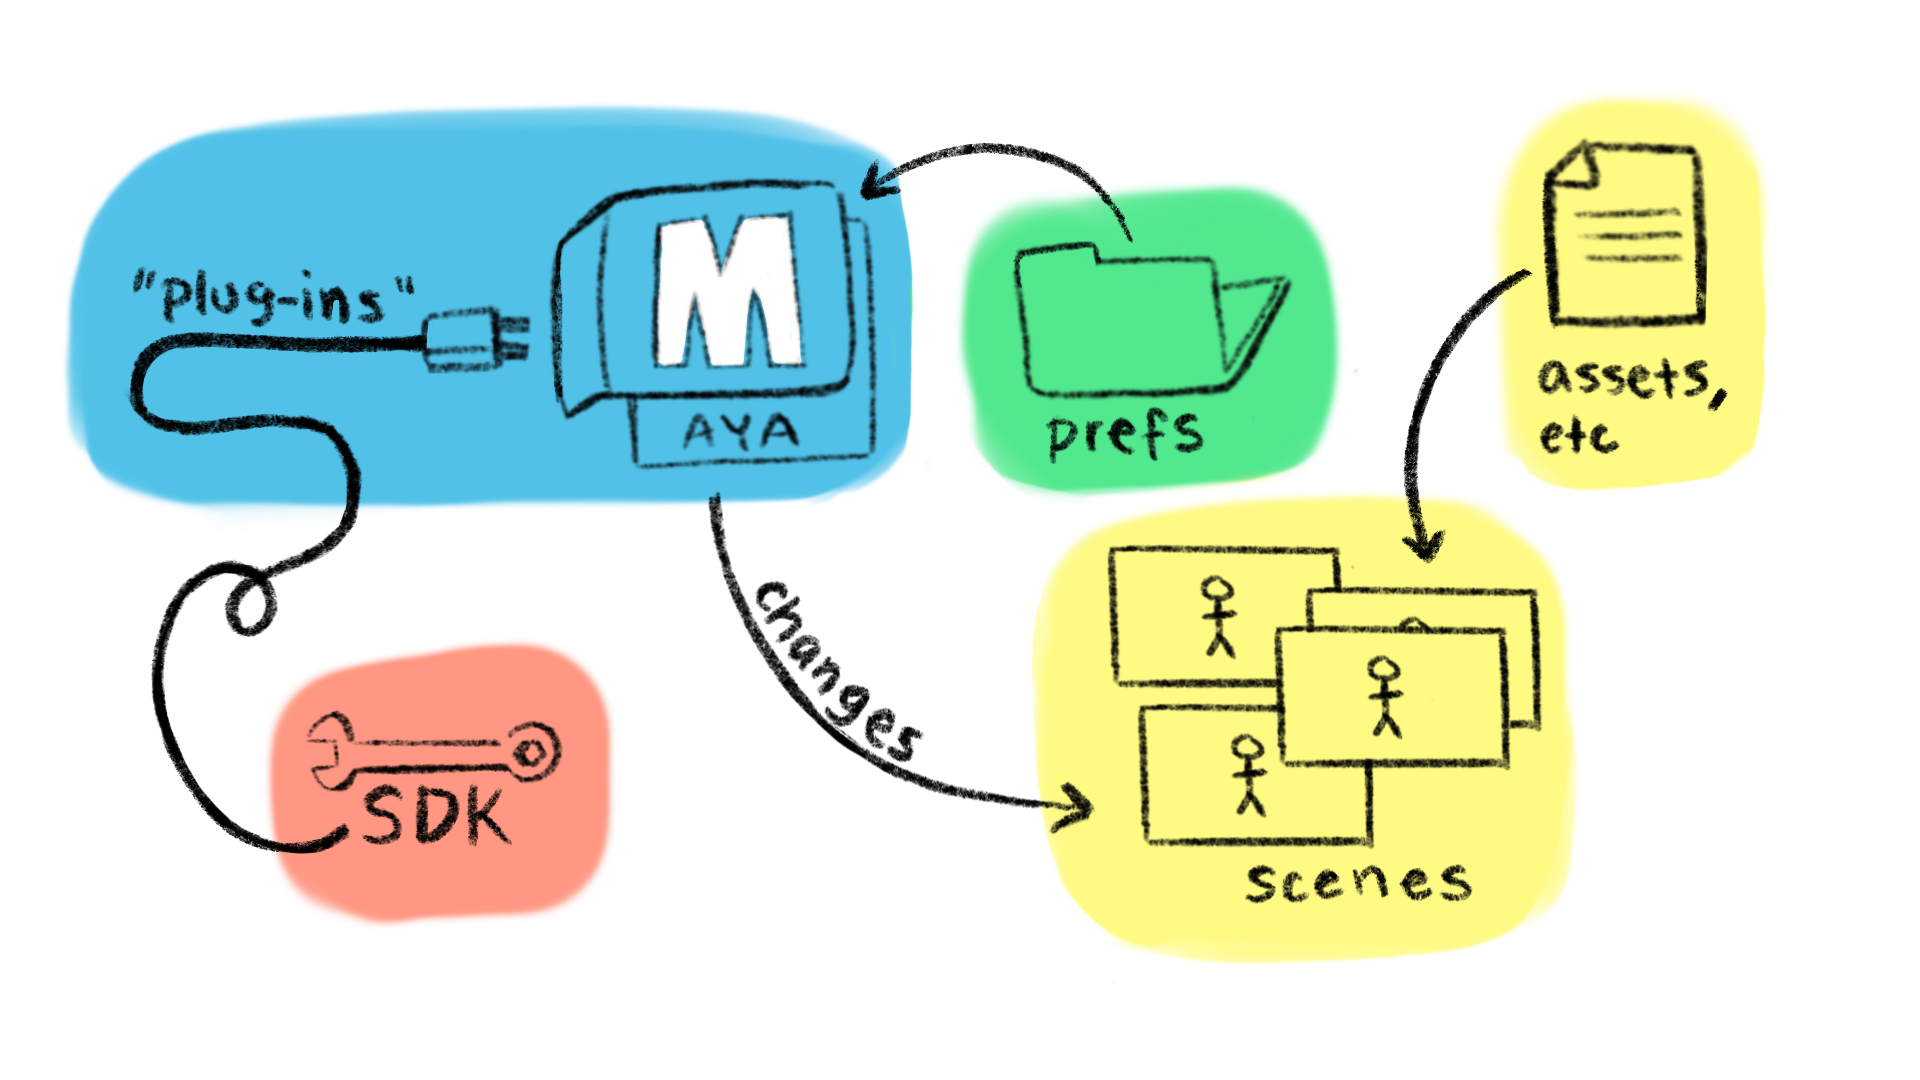 "plug-ins"
M
AYA
prefs
assets,
etc
changes
SDK
scenes